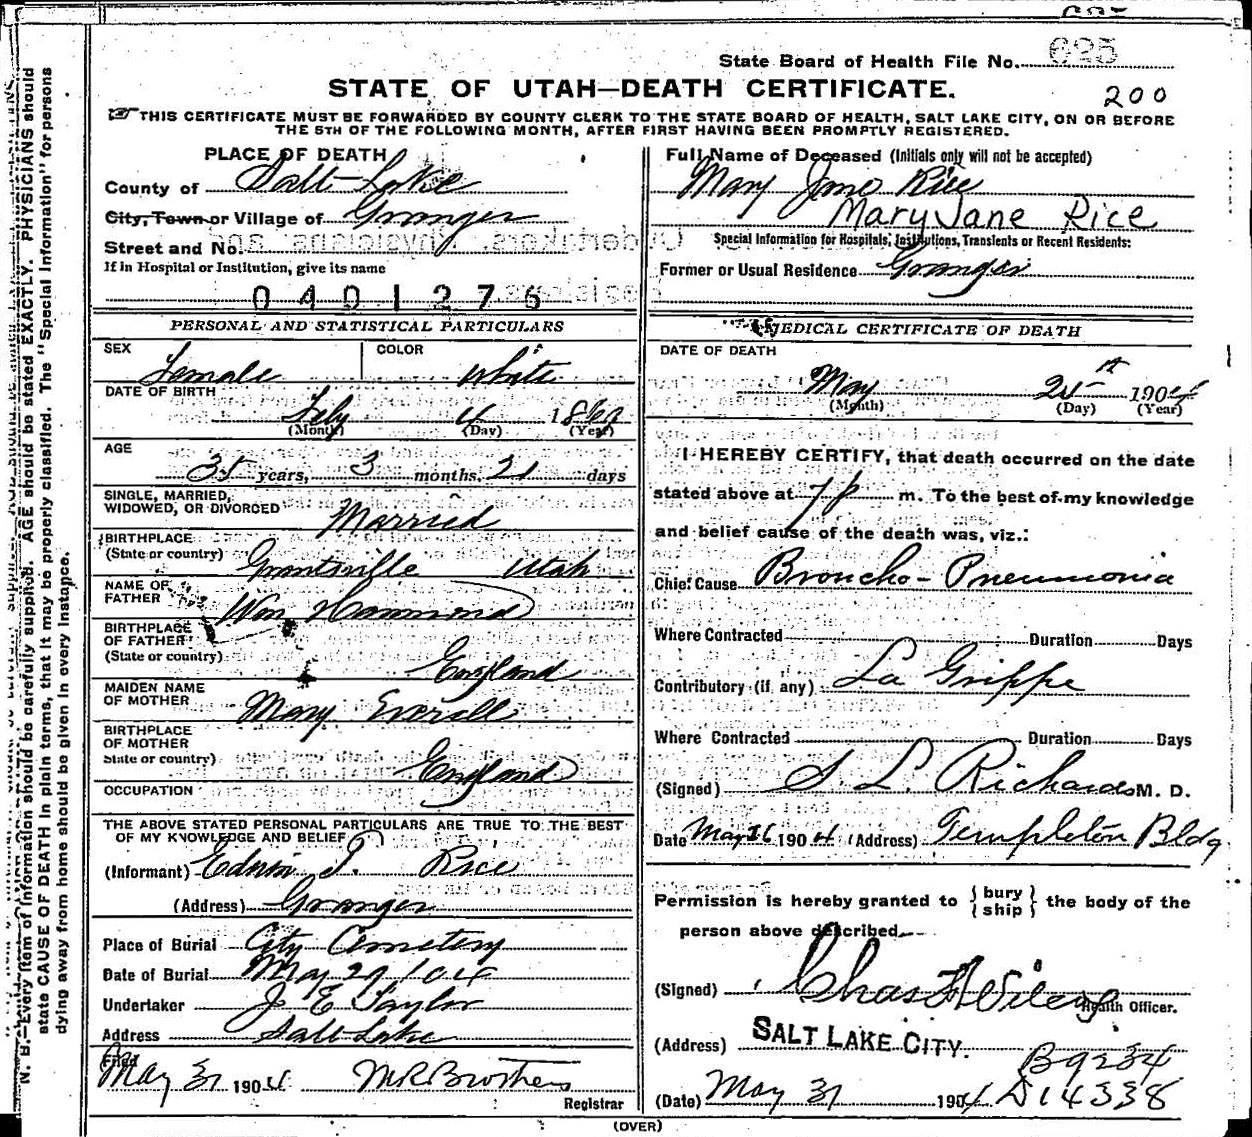 State Board of Health File No. 625
STATE OF UTAH—DEATH CERTIFICATE.
200
THIS CERTIFICATE MUST BE FORWARDED BY COUNTY CLERK TO THE STATE BOARD OF HEALTH, SALT LAKE CITY, ON OR BEFORE
THE 5TH OF THE FOLLOWING MONTH, AFTER FIRST HAVING BEEN PROMPTLY REGISTERED.
PLACE OF DEATH
County of Salt Lake
City, Town or Village of Granger
Street and No.
If in Hospital or Institution, give its name
0401276
PERSONAL AND STATISTICAL PARTICULARS
SEX Female COLOR White
DATE OF BIRTH
Feby 4 1869
(Month) (Day) (Year)
AGE
35 years, 3 months. 21 days
SINGLE, MARRIED,
WIDOWED, OR DIVORCED Married
BIRTHPLACE
(State or country) Grantsville Utah
NAME OF
FATHER Wm Hammond
BIRTHPLACE
OF FATHER
(State or country) England
MAIDEN NAME
OF MOTHER Mary Everall
BIRTHPLACE
OF MOTHER
State or country) England
OCCUPATION
THE ABOVE STATED PERSONAL PARTICULARS ARE TRUE TO THE BEST
OF MY KNOWLEDGE AND BELIEF
(Informant) Edwin T. Rice
(Address) Granger
Place of Burial City Cemetery
Date of Burial May 29 1904
Undertaker J E Taylor
Address Salt Lake
Filed
May 31 1904 M R Brothers
Registrar
Full Name of Deceased (Initials only will not be accepted)
Mary Jane Rice
Mary Jane Rice
Special Information for Hospitals, Institutions, Transients or Recent Residents:
Former or Usual Residence Granger
MEDICAL CERTIFICATE OF DEATH
DATE OF DEATH
May 1904
(Month) (Day) (Year)
I HEREBY CERTIFY, that death occurred on the date
stated above at 7 p m. To the best of my knowledge
and belief cause of the death was, viz.:
Chief Cause Broncho-Pneumonia
Where Contracted Duration Days
Contributory (if any) La Grippe
Where Contracted Duration Days
(Signed) S L Richards M. D.
Date May 26 1904 (Address) Templeton Bldg
Permission is hereby granted to { bury ship } the body of the
person above described
(Signed) Chas Wilcox Health Officer.
(Address) SALT LAKE CITY.
B9234
(Date) May 31 1904 D14338
(OVER)
N. B.—Every item of Information should be carefully supplied. AGE should be stated EXACTLY. PHYSICIANS should
state CAUSE OF DEATH in plain terms, that it may be properly classified. The "Special Information" for persons
dying away from home should be given in every instance.